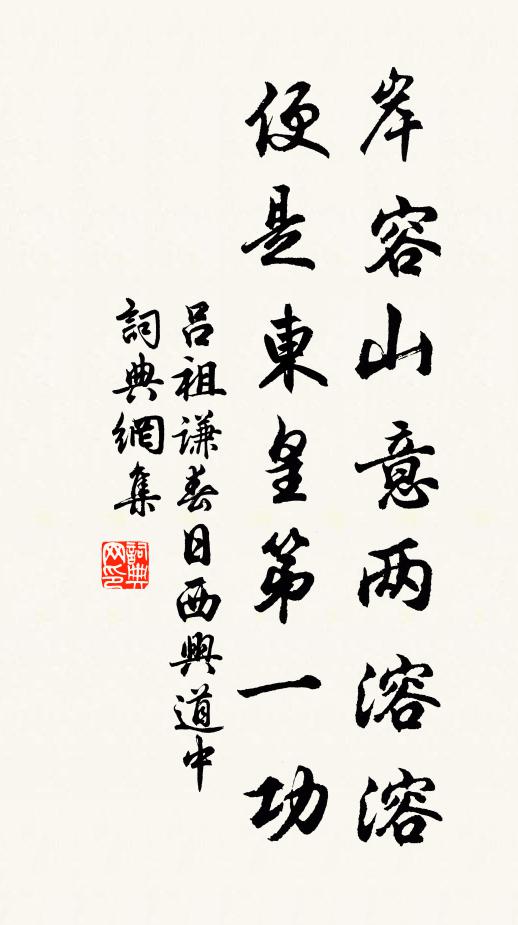 岸容山意两溶溶
便是東皇第一功
吕祖謙春日西興道中
詞典網集
詞典网印